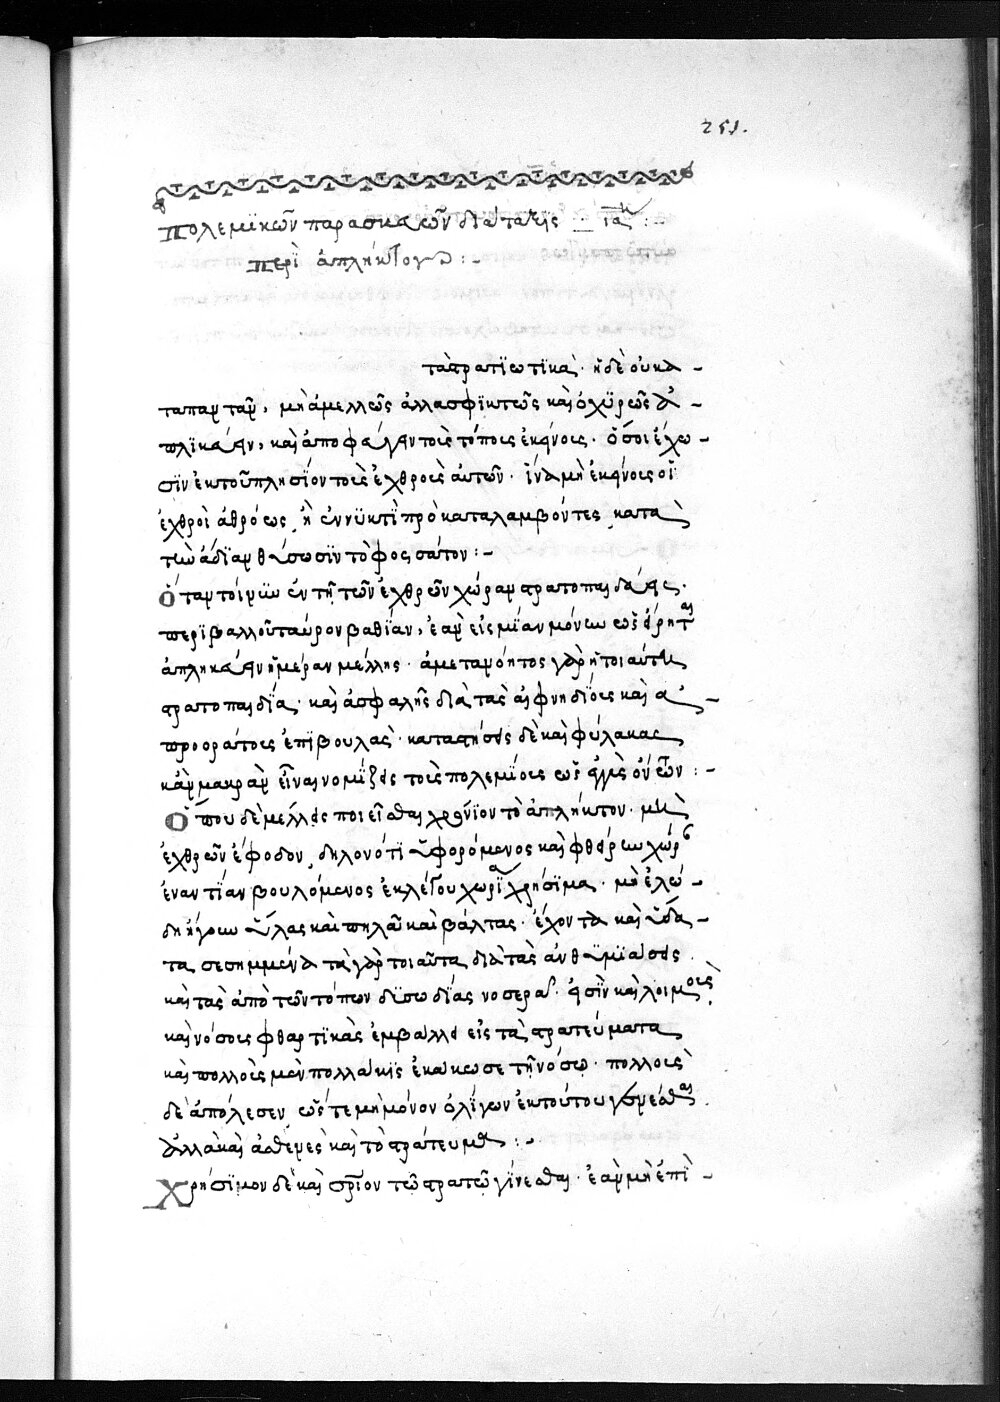 251.
Πολεμικῶν παρασκευῶν διάταξις ια
Περὶ ἀπλήκτου :-
τὰ στρατϊωτϊκὰ· ἤδε οὐκα-
μὴ ἀμελλῶς ἀλλασφϊκτῶς καὶ ὀχϋρῶς ἀ-
πλϊκεύειν, καὶ ἀποφεύγειν τοῖς τόποις ἐκείνοις· ὅσοι ἔχω-
σϊν ἐκ τοῦ πλησΐον τοὺς ἐχθροὺς αὐτῶν· ἵνα μὴ ἐκείνοις οἱ
ἐχθροὶ ἀθρόως, ἢ ἐν νϋκτὶ προκαταλαμβόντες κατὰ
τὸ φοσσάτον :-
Ὅταν τοίνϋν ἐν τῇ τῶν ἐχθρῶν χώραν στρατοπαιδεύεις·
περϊβαλλοῦ ταύρον βαθΐαν, ἐὰν εἰς μΐαν μόνην
ἀπληκεύειν ἡμέραν μέλλης· ἀμεταμόητος γὰρ ἡ τοιαύτη
στρατοπαιδία· καὶ ἀσφαλὴς διὰ τὰς αἰφνηδΐους καὶ ἀ-
προοράτοις ἐπϊβουλὰς· καταστήσεις δὲ καὶ φύλακας
κἂν μακρὰν εἶναι νομΐζεις τοὺς πολεμΐοις ὡς ἐγγὺς ὄντων :-
Ὅπου δὲ μέλλεις ποιεῖσθαι χρόνϊον τὸ ἀπλήκτον· μὴ
ἐχθρῶν ἔφοδον, δηλονότϊ ὑφορόμενος καὶ φθείρειν χώρ
ἐναντΐαν βουλόμενος ἐκλέγου χωρΐα χρήσϊμα· μὴ ἑλώ-
δη ὕλας καὶ πηλοῦ καὶ βάλτας· ἔχοντα καὶ ὕδα-
τα σεσημμένα τὰ γὰρ τοιαῦτα διὰ τὰς ἀνθϋμϊάσεις
καὶ τὰς ἀπὸ τῶν τόπων δϋσωδίας νοσερά εἰσϊν καὶ λοιμοὺς
καὶ νόσοις φθαρτϊκὰς ἐμβάλλει εἰς τὰ στρατεύματα
καὶ πολλοὺς μὲν πολλάκϊς ἐκάκωσε τῇ νόσῳ· πολλοὺς
δὲ ἀπόλεσεν, ὥστε μὴ μόνον ὀλΐγων ἐκ τούτου γενέσθαι
ἀλλὰ καὶ ἀσθενὲς καὶ τὸ στράτευμα :-
Χρήσϊμον δὲ καὶ τῶ στρατῶ γίνεσθαι· ἐὰν μὴ ἐπὶ-